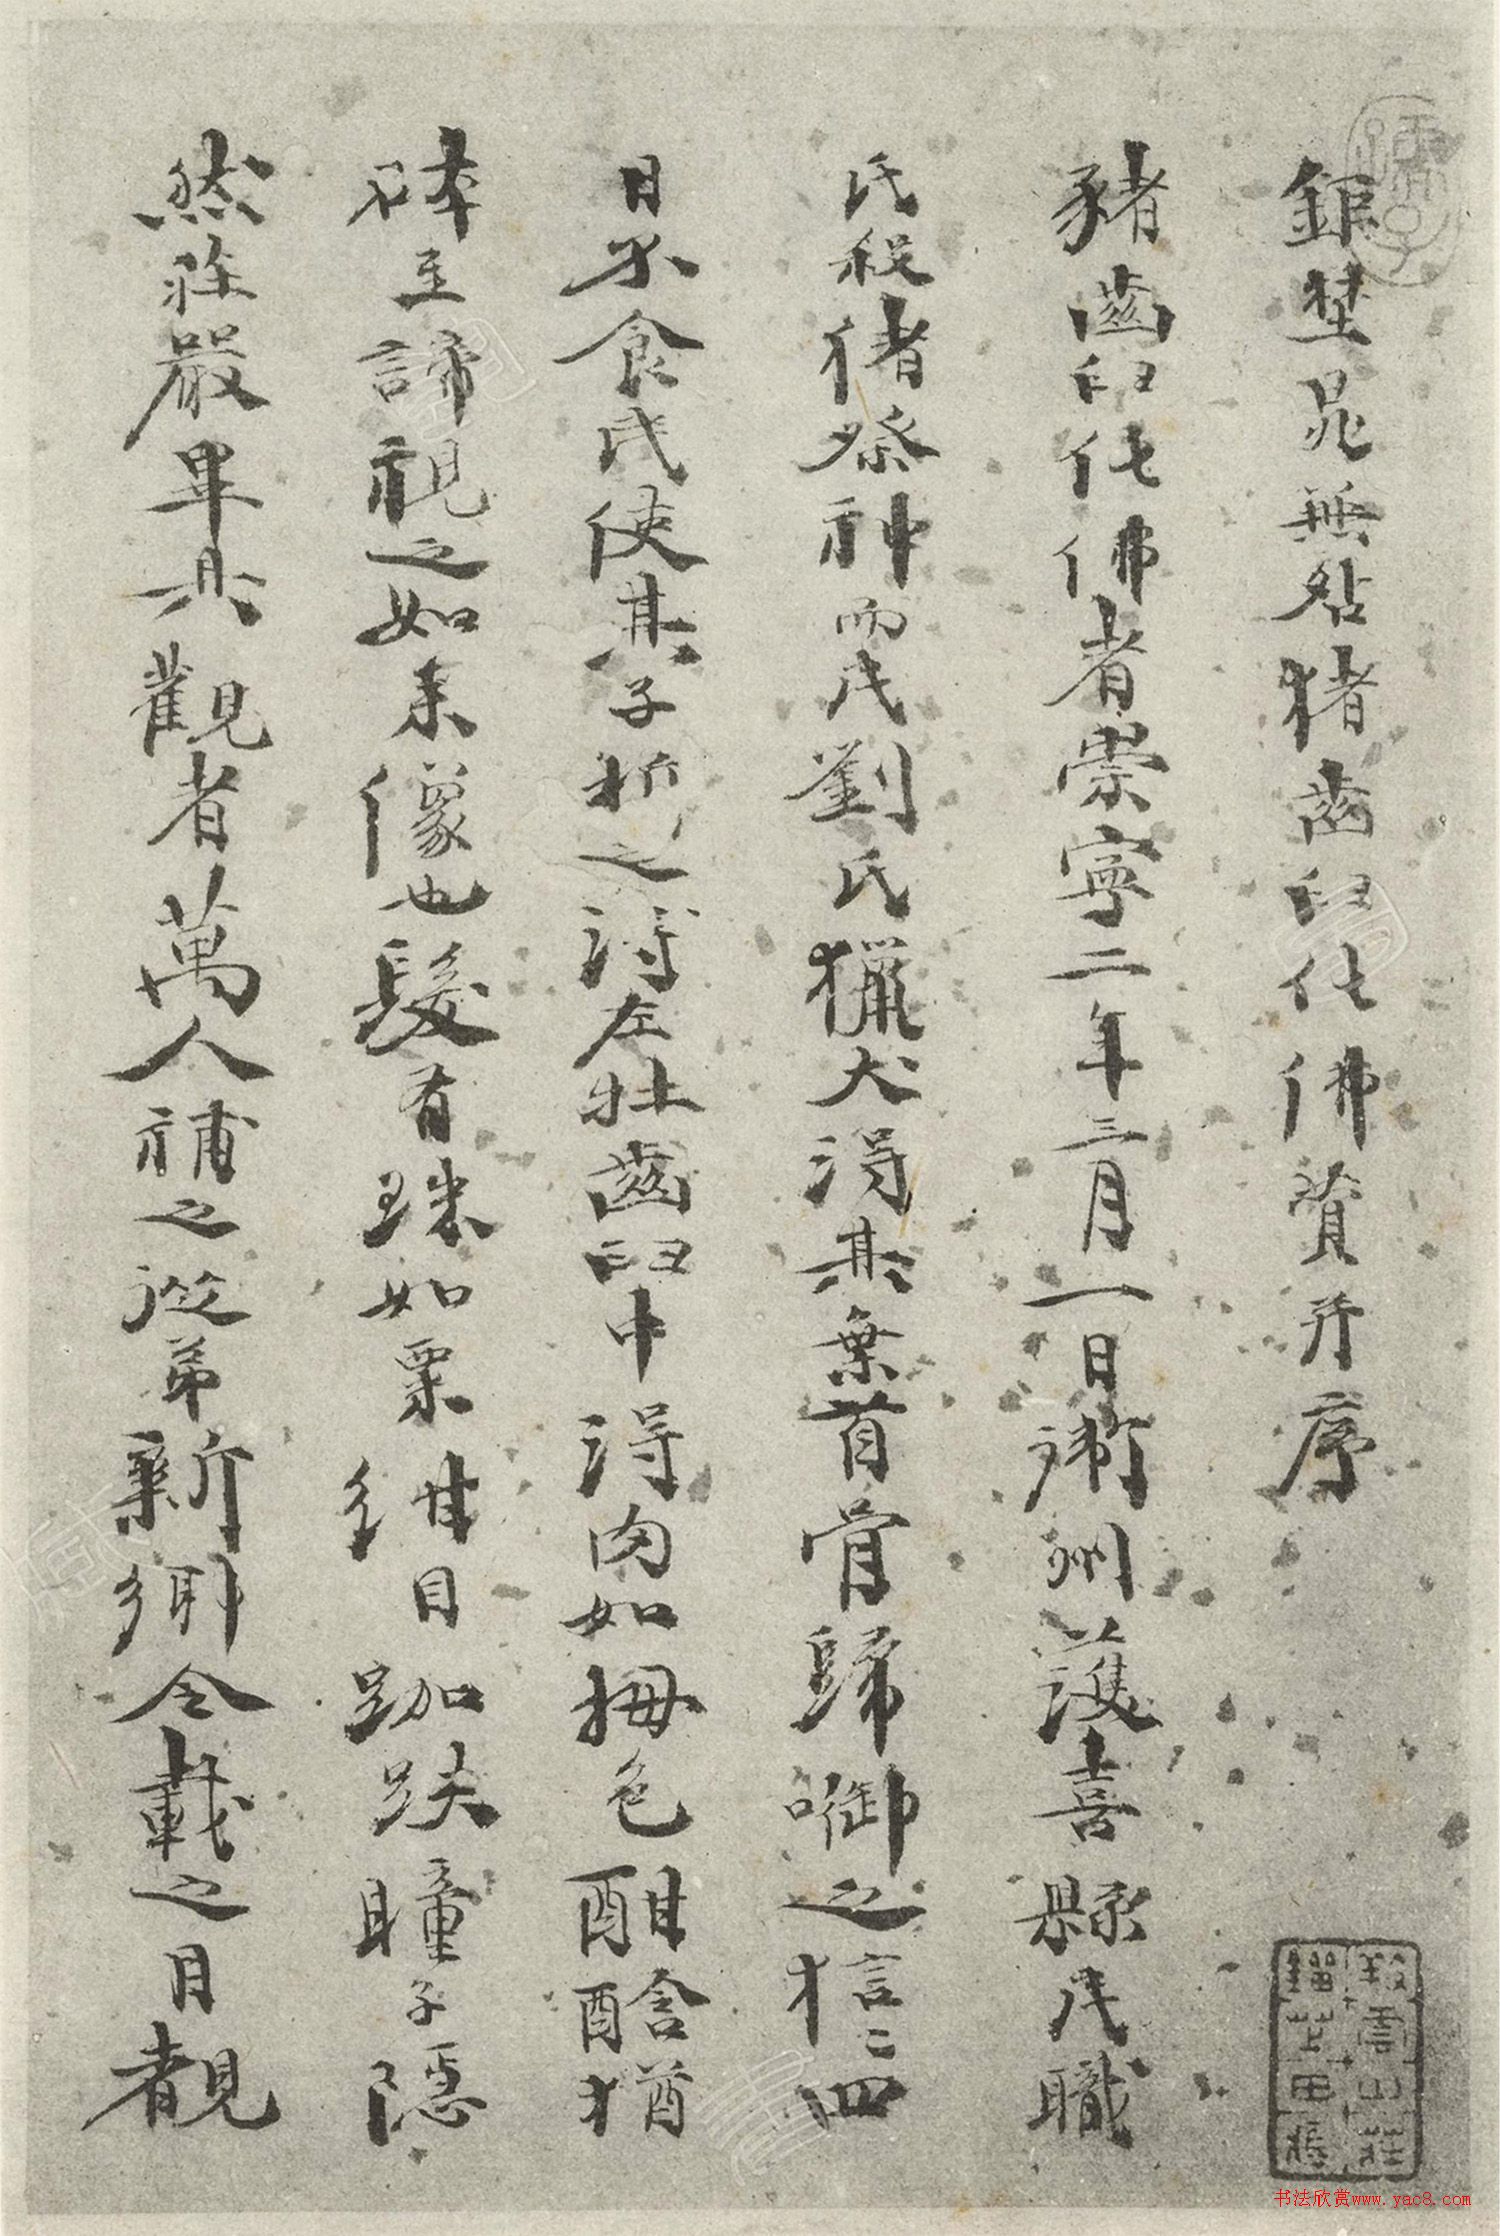 鉅埜晁無咎猪齒臼化佛贊并序
豬齒臼化佛者崇寧二年三月一日衛州護喜縣民職
氏殺猪祭神而民劉氏獵犬得其棄首骨歸啣之狺=四
日不食民使其子析之得左牡齒臼中得肉如拇色酣酓猶
硨至諦視之如来像也髮有珠如粟紺目跏趺瞳子隱
然莊嚴畢具觀者萬人補之從弟新鄉令載之目覩
書法欣赏www.yac8.com